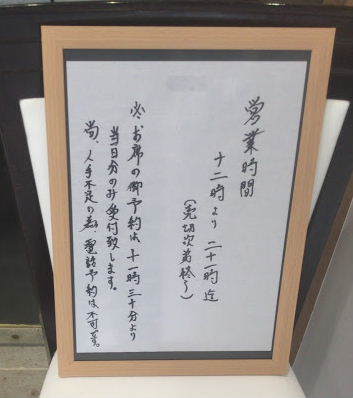 営業時間
十二時より 二十一時迄
(売切次第終り)
※お席の御予約は、十一時三十分より
当日分のみ受付致します。
尚、人手不足の為、電話予約は不可です。